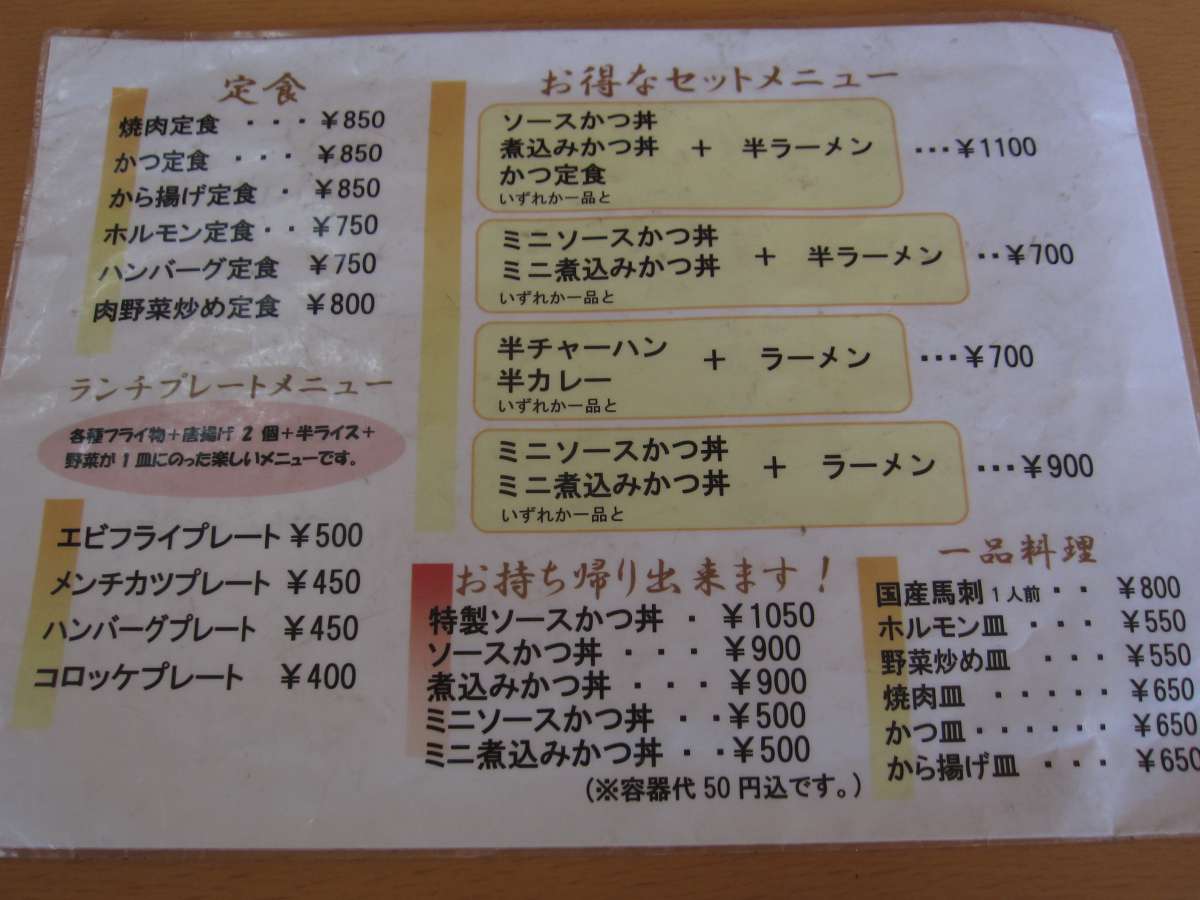 定食
焼肉定食 ・・・￥850
かつ定食 ・・・￥850
から揚げ定食 ・￥850
ホルモン定食・・￥750
ハンバーグ定食 ￥750
肉野菜炒め定食 ￥800
ランチプレートメニュー
各種フライ物＋唐揚げ 2 個＋半ライス＋
野菜が 1 皿にのった楽しいメニューです。
エビフライプレート ￥500
メンチカツプレート ￥450
ハンバーグプレート ￥450
コロッケプレート ￥400
お得なセットメニュー
ソースかつ丼
煮込みかつ丼 ＋ 半ラーメン …￥1100
かつ定食
いずれか一品と
ミニソースかつ丼
ミニ煮込みかつ丼 ＋ 半ラーメン ‥￥700
いずれか一品と
半チャーハン ＋ ラーメン …￥700
半カレー
いずれか一品と
ミニソースかつ丼
ミニ煮込みかつ丼 ＋ ラーメン …￥900
いずれか一品と
お持ち帰り出来ます！
特製ソースかつ丼 ・￥1050
ソースかつ丼 ・・・￥900
煮込みかつ丼 ・・・￥900
ミニソースかつ丼 ・・￥500
ミニ煮込みかつ丼 ・・￥500
（※容器代 50 円込です。）
一品料理
国産馬刺 1 人前・・ ￥800
ホルモン皿 ・・・ ￥550
野菜炒め皿 ・・・￥550
焼肉皿 ・・・・・￥650
かつ皿・・・・・・￥650
から揚げ皿 ・・・ ￥650